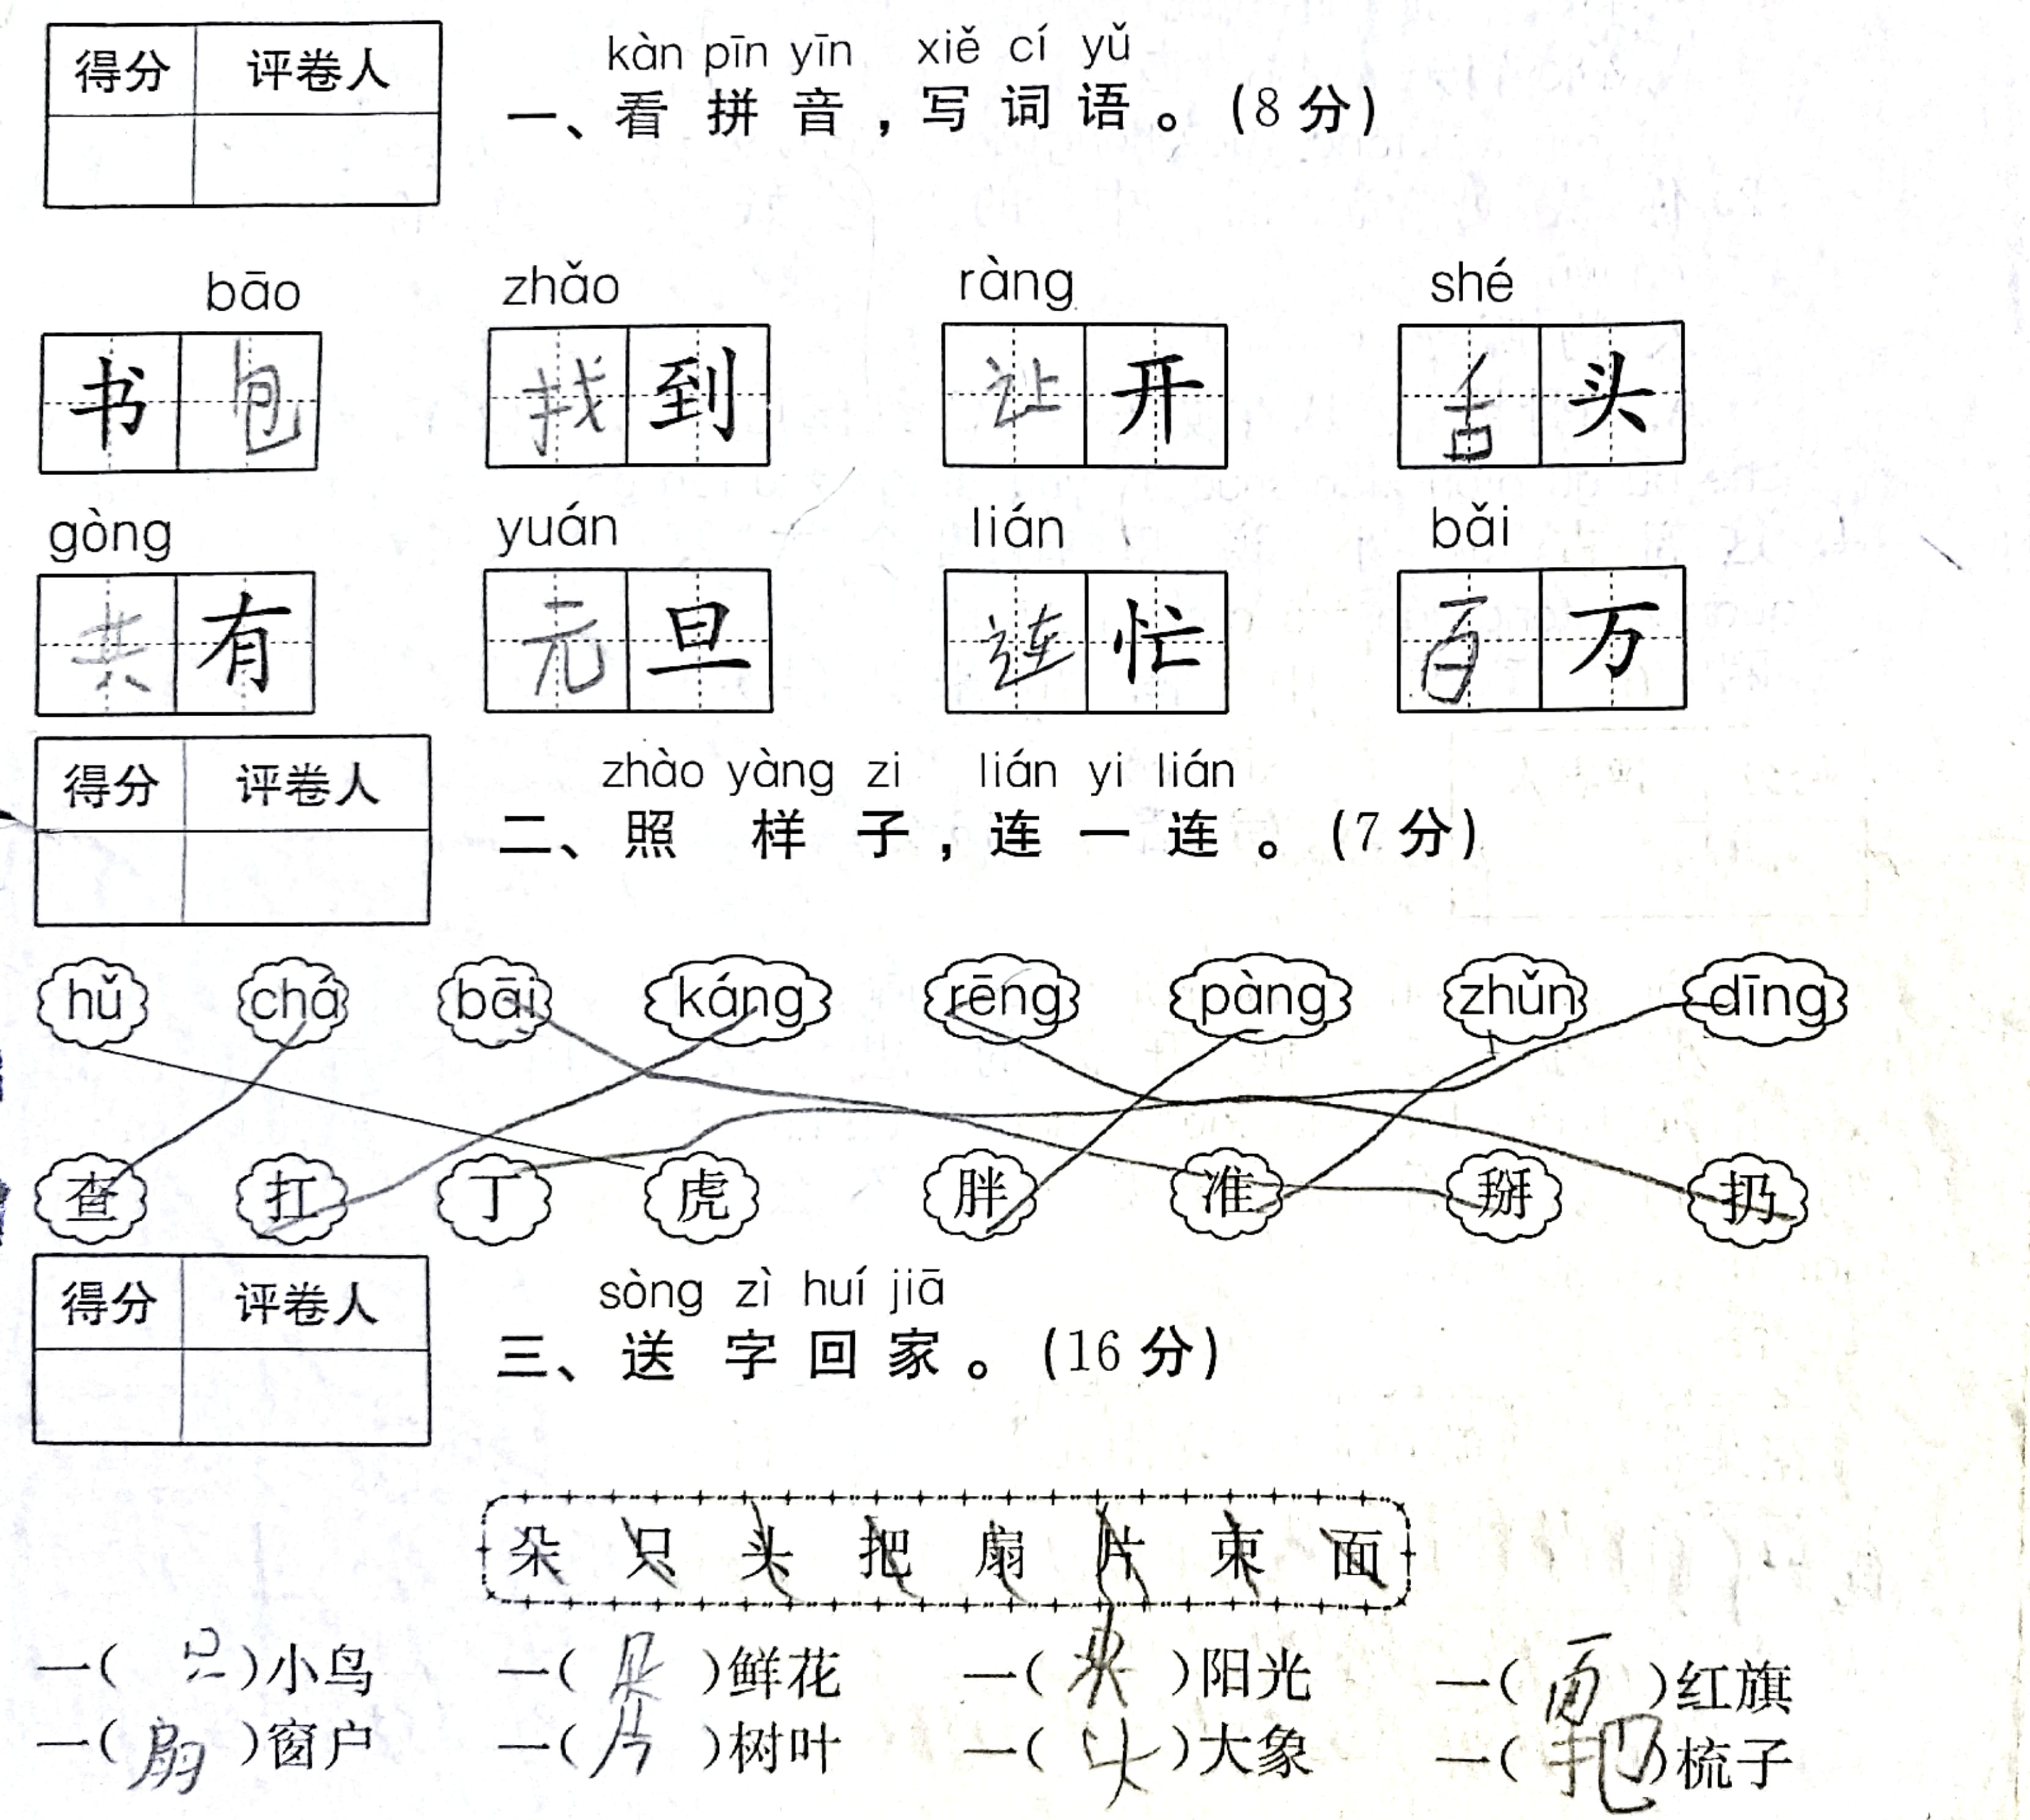 得分 评卷人
kàn pīn yīn xiě cí yǔ
一、看拼音，写词语。(8分)
bāo zhǎo ràng shé
书包 找到 让开 舌头
gòng yuán lián bǎi
共有 元旦 连忙 百万
得分 评卷人
zhào yàng zi lián yi lián
二、照样子，连一连。(7分)
hǔ chá bāi káng rēng pàng zhǔn dīng
查 扛 丁 虎 胖 准 掰 扔
得分 评卷人
sòng zì huí jiā
三、送字回家。(16分)
朵 只 头 把 扇 片 束 面
一(只)小鸟 一(朵)鲜花 一(束)阳光 一(面)红旗
一(扇)窗户 一(片)树叶 一(头)大象 一(把)梳子